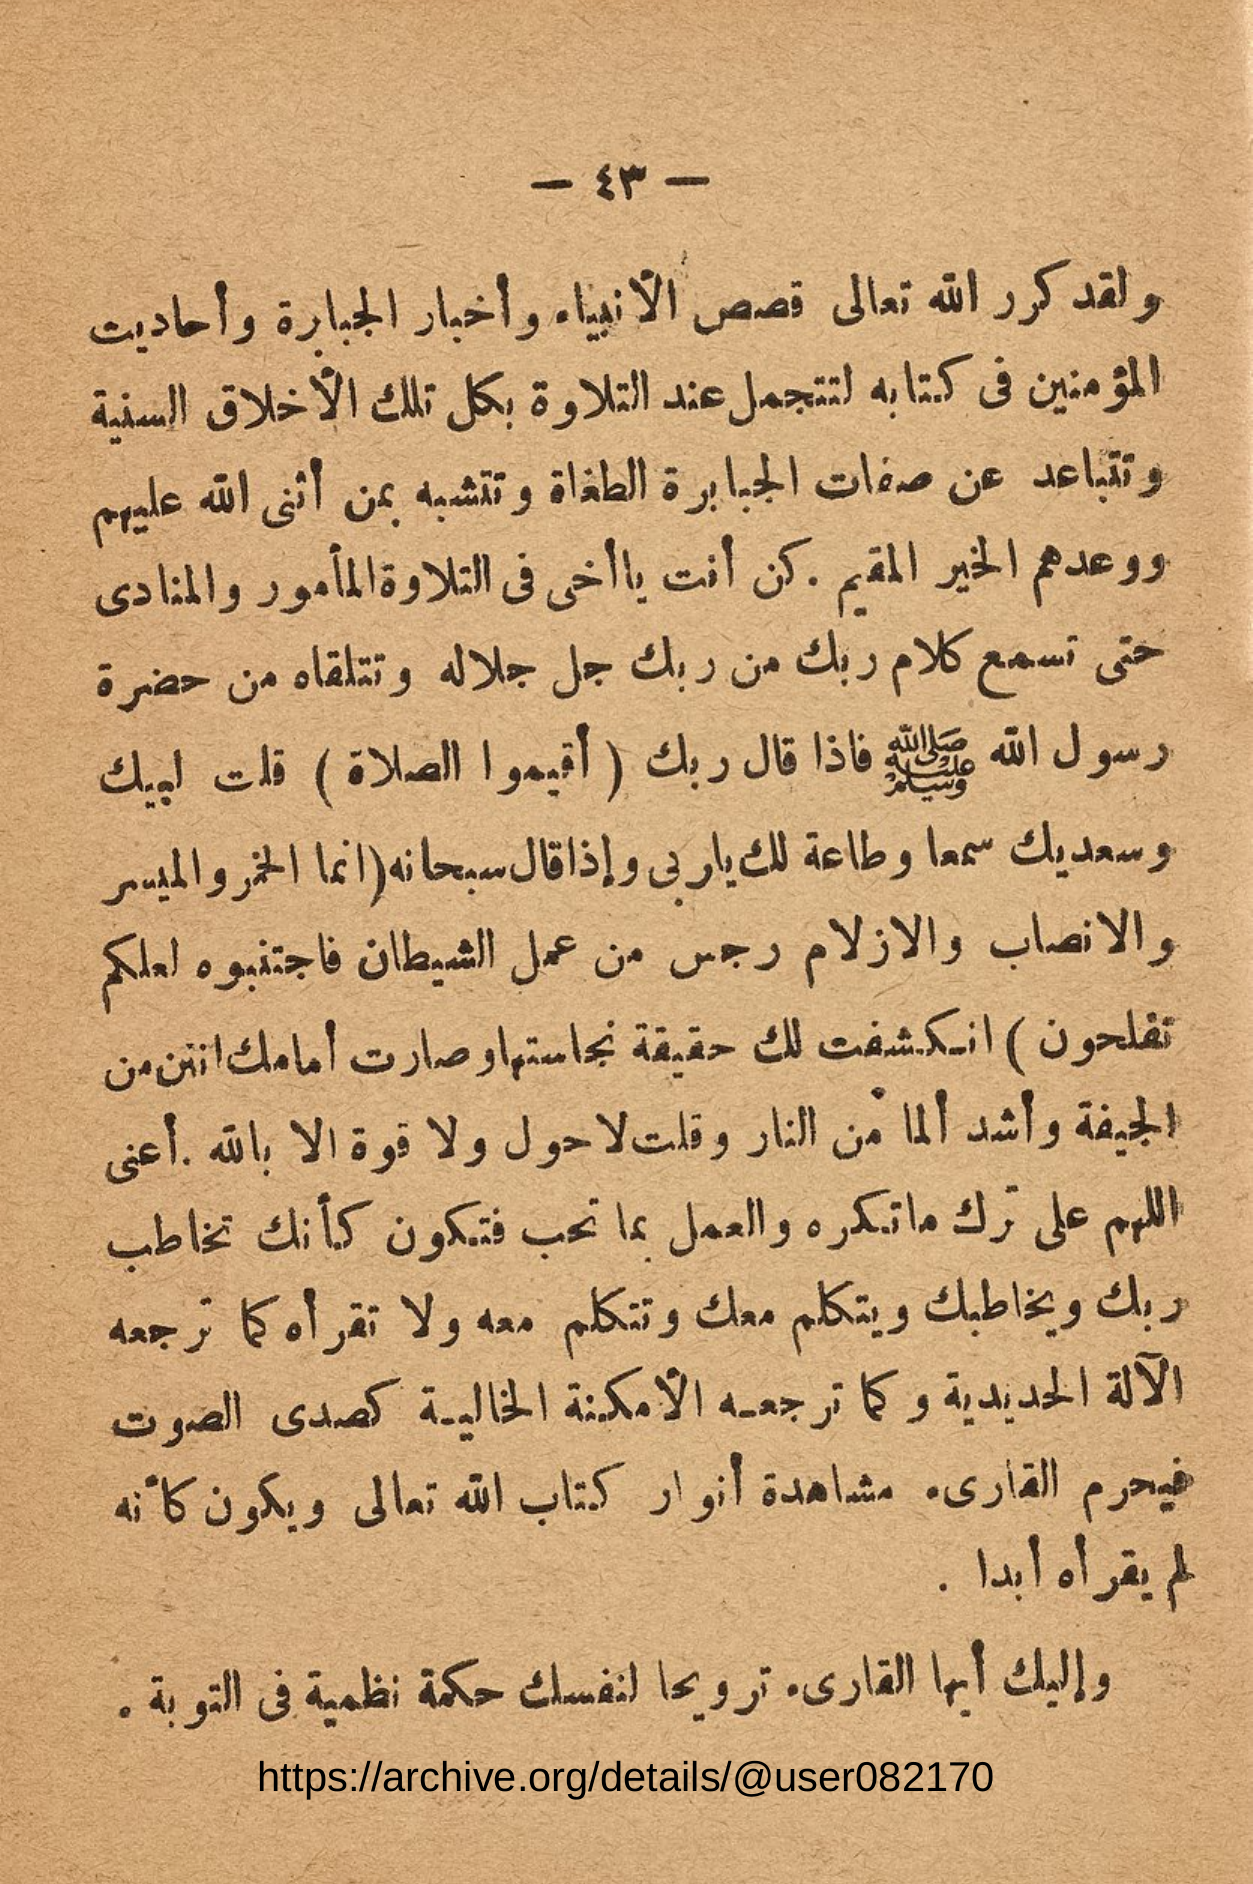 — ٤٣ —
ولقد كرر الله تعالى قصص الأنبياء وأخبار الجبابرة وأحاديث
المؤمنين فى كتابه لتتجمل عند التلاوة بكل تلك الأخلاق السنية
وتتباعد عن صفات الجبابرة الطغاة وتتشبه بمن أثنى الله عليهم
ووعدهم الخير المقيم . كن أنت ياأخى فى التلاوة المأمور والمنادى
حتى تسمع كلام ربك من ربك جل جلاله وتتلقاه من حضرة
رسول الله ﷺ فاذا قال ربك ( أقيموا الصلاة ) قلت لبيك
وسعديك سمعا وطاعة لك يا ربى وإذا قال سبحانه ( انما الخمر والميسر
والانصاب والازلام رجس من عمل الشيطان فاجتنبوه لعلكم
تفلحون ) انكشفت لك حقيقة نجاستها وصارت أمامك انتن من
الجيفة وأشد ألما من النار وقلت لا حول ولا قوة الا بالله . أعنى
اللهم على ترك ماتكره والعمل بما تحب فتكون كأنك تخاطب
ربك ويخاطبك ويتكلم معك وتتكلم معه ولا تقرأه كما ترجعه
الآلة الحديدية وكما ترجعه الأمكنة الخالية كصدى الصوت
فيحرم القارىء مشاهدة أنوار كتاب الله تعالى ويكون كأنه
لم يقرأه أبدا .
وإليك أيها القارىء ترويحا لنفسك حكمة نظمية فى التوبة .
https://archive.org/details/@user082170